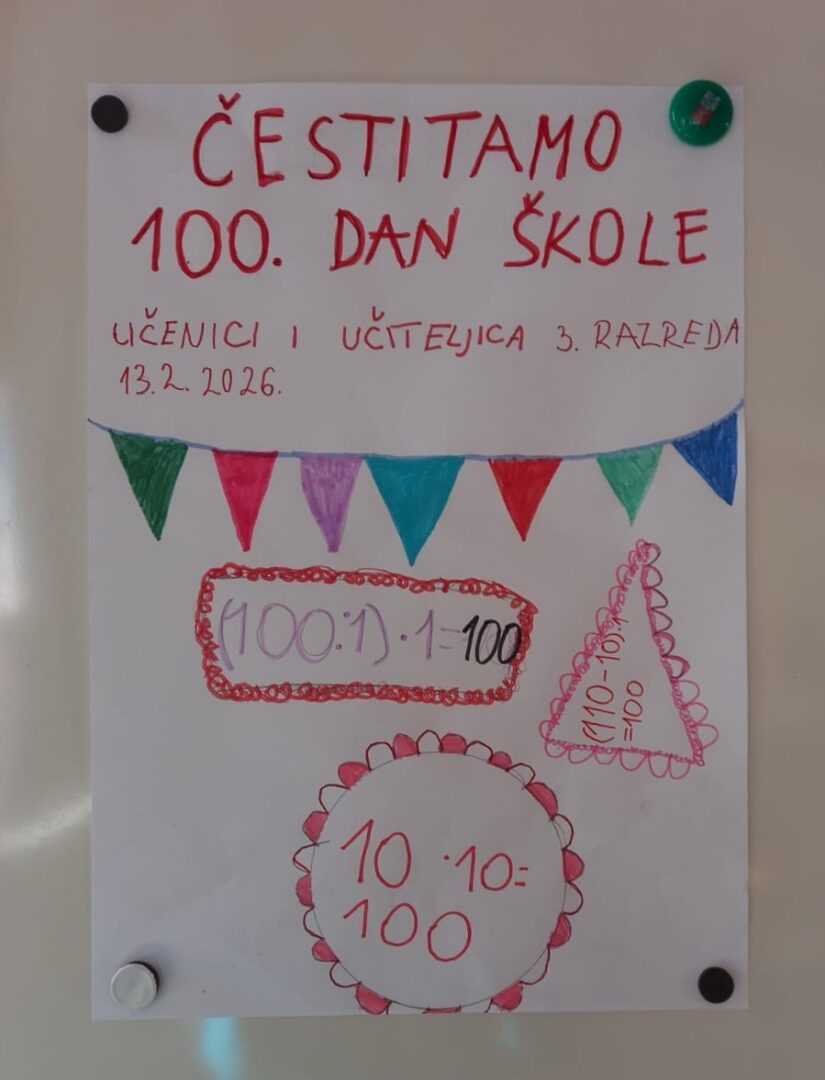 ČESTITAMO
100. DAN ŠKOLE
UČENICI I UČITELJICA 3. RAZREDA
13.2.2026.
(100:1)·1=100
(110-10)·1
=100
10·10=
100